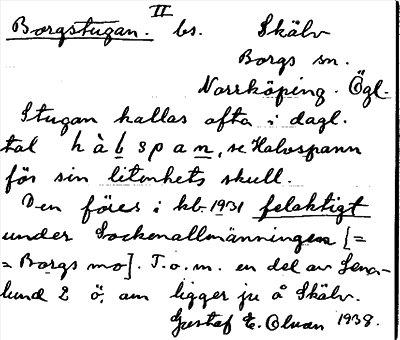 Borgstugan. II bs. Skälv
Borgs sn.
Norrköping. Ögl.
Stugan kallas ofta i dagl.
tal hàbspan, se Halvspann
för sin litenhets skull.
Den föres i kb. 1931 felaktigt
under Sockenallmänningen [=
= Borgs mo]. T.o.m. en del av Lena-
lund 2 ö. am ligger ju å Skälv.
Gustaf E. Olvan 1938.